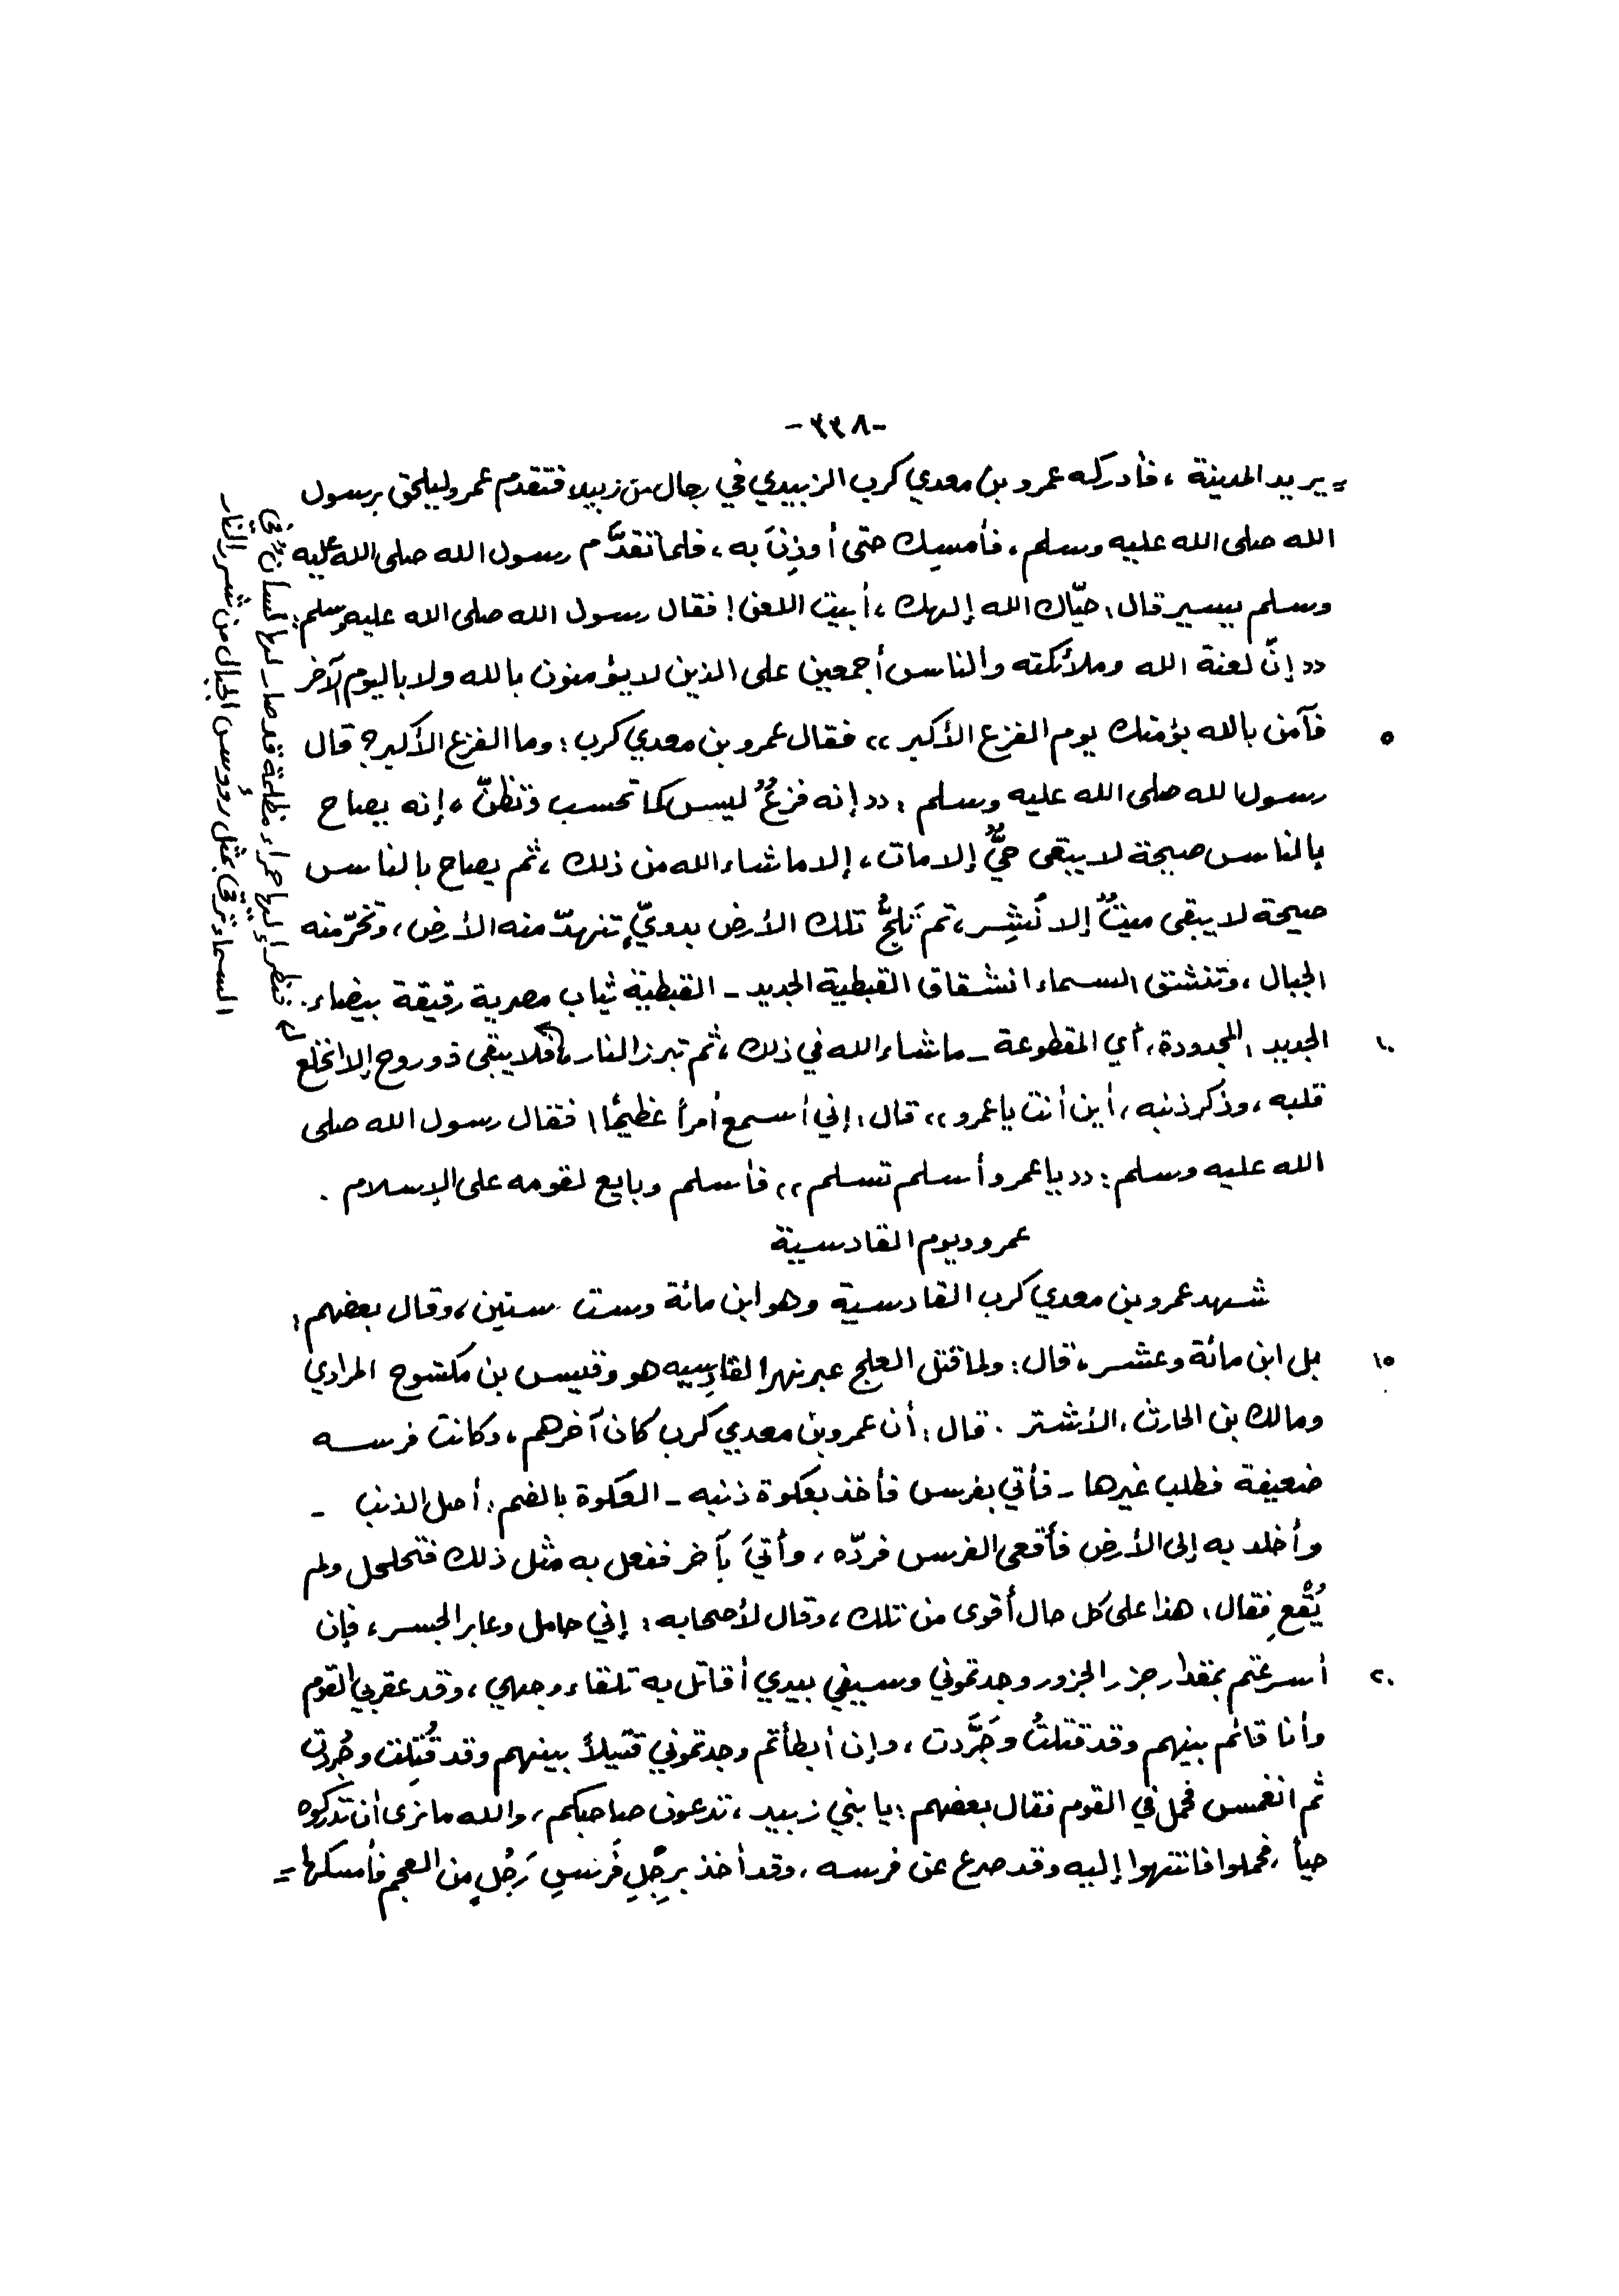 -٣٣٨-
= يريد المدينة ، فأدركه عمرو بن معدي كرب الزبيدي في رجال من زبيد فتقدم عمرو ليلحق برسول
الله صلى الله عليه وسلم ، فأمسك حتى أوذِنَ به ، فلما تقدَّم رسول الله صلى الله عليه
وسلم يسير قال : حيّاك الله إلهك ، أبيت اللعن ! فقال رسول الله صلى الله عليه وسلم :
(( إنّ لعنة الله وملائكته والناس أجمعين على الذين لا يؤمنون بالله ولا باليوم الآخر
٥ فآمن بالله يؤمنك يوم الفزع الأكبر )) فقال عمرو بن معدي كرب : وما الفزع الأكبر ؟ قال
رسول الله صلى الله عليه وسلم : (( إنه فزعٌ ليس كما تحسب وتظنّ ، إنه يصاح
بالناس صيحة لا يبقى حيٌّ إلا مات ، إلا ما شاء الله من ذلك ، ثم يصاح بالناس
صيحة لا يبقى ميتٌ إلا نُشِر ، ثم تَلجُّ تلك الأرض بدويٍّ تنهدّ منه الأرض ، وتخرّ منه
الجبال ، وتنشق السماء انشقاق القبطية الجديد - القبطية ثياب مصرية رقيقة بيضاء .
١٠ الجديد : المجدودة ، أي المقطوعة - ما شاء الله في ذلك ، ثم تبرز النار ، فلا يبقى ذو روح إلا انخلع
قلبه ، وذكر ذنبه ، أين أنت يا عمرو )) قال : إني أسمع أمراً عظيمًا ! فقال رسول الله صلى
الله عليه وسلم : (( يا عمرو أسلم تسلم )) فأسلم وبايع لقومه على الإسلام .
عمرو ويوم القادسية
شهد عمرو بن معدي كرب القادسية وهو ابن مائة وست ستين ، وقال بعضهم :
١٥ بل ابن مائة وعشر ، قال : ولما قتل العلج عبر نهر القادِسيه هو وقيس بن مكشوح المرادي
ومالك بن الحارث . الأشتر . قال : أن عمرو بن معدي كرب كان آخرهم ، وكانت فرسه
ضعيفة فطلب غيرها - فأتي بفرس فأخذ بعكوة ذنبه - العكوة بالضم : أصل الذنب -
وأخلد به إلى الأرض فأقعى الفرس فردّه ، وأتيَ بآخر ففعل به مثل ذلك فتحلحل ولم
يُقْعِ فقال : هذا على كل حال أقوى من تلك ، وقال لأصحابه : إني حامل وعابر الجسر ، فإن
٢٠ أسرعتم بمقدار جزر الجزور وجدتموني وسيفي بيدي أقاتل به تلقاء وجهي ، وقد عقر بي القوم
وأنا قائم بينهم وقد قتلتُ وجَرَّدت ، وإن أبطأتم وجدتموني قتيلاً بينهم وقد قُتِلت وجُردت
ثم انغمس فحمل في القوم فقال بعضهم : يا بني زبيد ، تدعون صاحبكم ، والله ما نرى أن تدركوه
حياً ، فحملوا فانتهوا إليه وقد صرع عن فرسه ، وقد أخذ برِجْلِ فَرَسِ رَجُلٍ من العجم فأمسكها =
فنظر إليها حمراء مظلمة قد صار لها لسان في
السماء ترمي بمثل رؤوس الجبال من شرر النّار